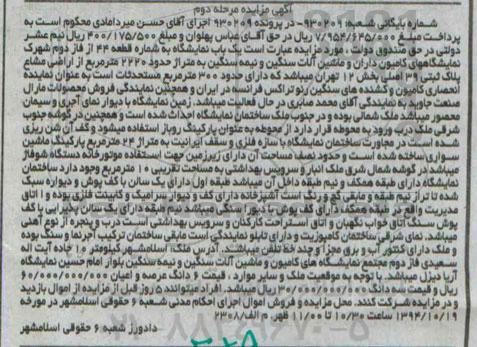 آگهی مزایده مرحله دوم
شماره بایگانی شعبه: ۹۳۰۲۰۹- در پرونده ۹۳۰۲۰۹ اجرای آقای حسن میردامادی محکوم است به
پرداخت مبلغ ۷/۹۵۴/۶۴۵/۰۰۰ ریال در حق آقای عباس پهلوان و مبلغ ۴۰۰/۱۷۵/۵۰۰ ریال نیم عشر
دولتی در حق صندوق دولت . مورد مزایده عبارت است یک باب نمایشگاه به شماره قطعه ۴۴ از فاز دوم شهرک
نمایشگاههای کامیون داران و ماشین آلات سنگین و نیمه سنگین به متراژ حدود ۲۲۲۰ مترمربع از اراضی مشاع
پلاک ثبتی ۳۹ اصلی بخش ۱۲ تهران میباشد که دارای حدود ۳۰۰ مترمربع مستحدثات است به عنوان نماینده
انحصاری کامیون و کشنده های سنگین رنو تراکس فرانسه در ایران و همچنین نمایندگی فروش محصولات مارال
صنعت جاوید به نمایندگی آقای محمد صابری در حال فعالیت میباشد. زمین نمایشگاه با دیوار نمای آجری و سیمان
محصور میباشد ملک شمالی بوده و در جنوب ملک ساختمان نمایشگاه احداث شده است و همچنین در گوشه جنوب
شرقی ملک درب ورود به محوطه قرار دارد از محوطه به عنوان پارکینگ روباز استفاده میشود و کف آن شن ریزی
شده است در مجاورت ساختمان نمایشگاه با سازه فلزی و سقف ایرانیت به متراژ ۲۴ مترمربع پارکینگ ماشین
سواری ساخته شده است و حدود نصف مساحت آن دارای زیرزمین جهت استفاده موتورخانه دستگاه شوفاژ
میباشد در گوشه شمال شرق ملک انبار و سرویس بهداشتی به مساحت تقریبی ۱۰ مترمربع وجود دارد ساختمان
نمایشگاه دارای طبقه همکف و نیم طبقه داخل آن میباشد طبقه اول دارای یک سالن با کف پوش و دیواره سبک
شده تا تراز نیم طبقه و مابقی گچ و رنگ است آشپزخانه دارای کف و دیوار سرامیک و کابینت فلزی بوده و ۱ اتاق
مدیریت واقع در طبقه همکف دارای کف پوش با دیوار سنگی میباشد نیم طبقه دارای یک سالن پذیرایی با کف
پوش سنگ اتاق خواب نگهبان و اتاق کارکنان و سرویس بهداشتی است. درب و پنجره از نوع آهنی
میباشد. نمای شرقی ساختمان کامپوزیت و دارای تابلو نمایندگی است مابقی ساختمان ترکیب آجرنما و سنگ بوده
و ملک دارای کنتور آب و برق مجزا و چند خط تلفن میباشد. آدرس ملک: اسلامشهر کیلومتر ۱۰ جاده آیت اله
سعیدی فاز دوم مجتمع نمایشگاه های کامیون و ماشین آلات سنگین و نیمه سنگین بلوار امام حسین نمایشگاه
آریا دیزل میباشد. با توجه به موقعیت ملک و سایر موارد ، قیمت ۶ دانگ عرصه و اعیان ۶۰/۰۰۰/۰۰۰/۰۰۰
ریال و قیمت سه دانگ ۳۰/۰۰۰/۰۰۰/۰۰۰ ریال میباشد. افراد میتوانند ۵ روز قبل از مزایده از اموال بازدید
و در مزایده شرکت کنند. محل مزایده و فروش اموال اجرای احکام مدنی شعبه ۶ حقوقی اسلامشهر در مورخه
۱۳۹۴/۱۰/۱۹ ساعت ۱۰/۳۰ تا ۱۱/۰۰ ظهر. م الف/۲۳۰۸
دادورز شعبه ۶ حقوقی اسلامشهر